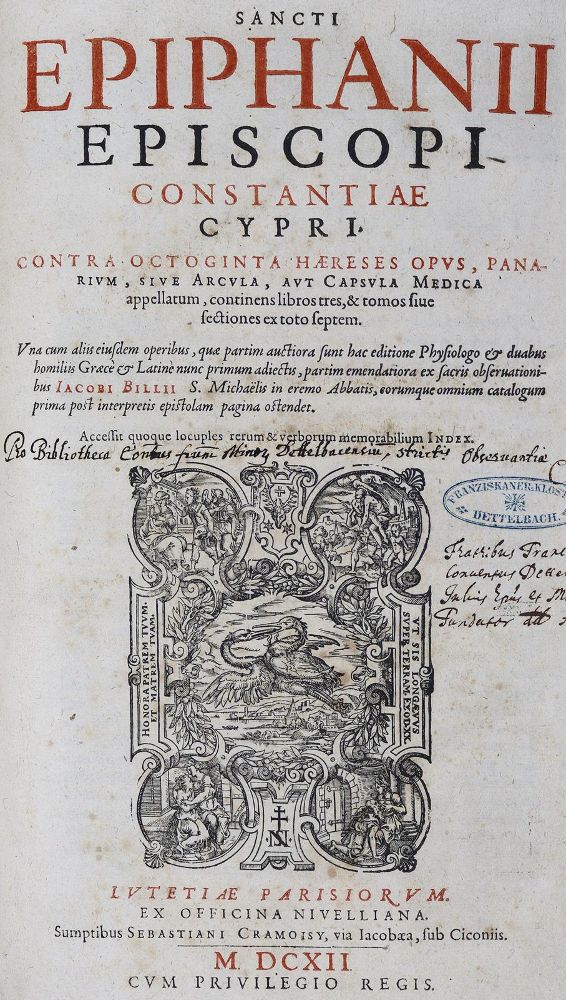 SANCTI
EPIPHANII
EPISCOPI
CONSTANTIAE
CYPRI.
CONTRA OCTOGINTA HÆRESES OPVS, PANA-
RIVM, SIVE ARCVLA, AVT CAPSVLA MEDICA
appellatum, continens libros tres, & tomos siue
sectiones ex toto septem.
Vna cum aliis eiusdem operibus, quæ partim auctiora sunt hac editione Physiologo & duabus
homiliis Græcè & Latinè nunc primum adiectis, partim emendatiora ex sacris obseruationi-
bus IACOBI BILLII S. Michaëlis in eremo Abbatis, eorumque omnium catalogum
prima post interpretis epistolam pagina ostendet.
Accessit quoque locuples rerum & verborum memorabilium INDEX.
Pro Bibliotheca Dettelbacensiu, strictis Obseruantiæ
FRANZISKANER-KLOST
DETTELBACH.
Fratribus Franc
Conuentus Dette
Julius Epus et
Fundator
HONORA PATREM TVVM.
ET MATREM TVAM.
VT SIS LONGÆVVS
SVPER TERRAM. EXOD. XX.
LVTETIAE PARISIORVM.
EX OFFICINA NIVELLIANA.
Sumptibus SEBASTIANI CRAMOISY, via Iacobæa, sub Ciconiis.
M. DCXII.
CVM PRIVILEGIO REGIS.